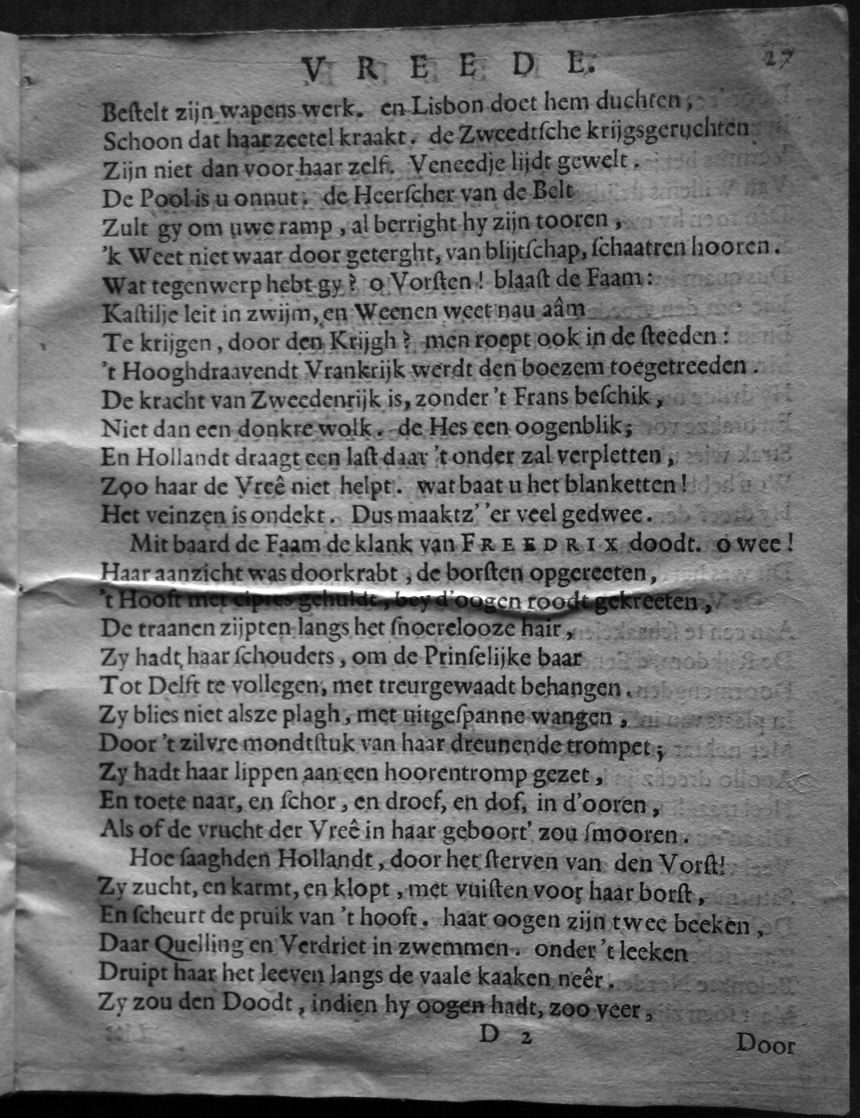 VREEDE. 27
Beſtelt zijn wapens werk. en Lisbon doet hem duchten,
Schoon dat haar zeetel kraakt. de Zweedtſche krijgsgeruchten
Zijn niet dan voor haar zelf. Veneedje lijdt gewelt.
De Pool is u onnut. de Heerſcher van de Belt
Zult gy om uwe ramp, al berright hy zijn tooren,
'k Weet niet waar door geterght, van blijtſchap, ſchaatren hooren.
Wat tegenwerp hebt gy? o Vorſten! blaaſt de Faam:
Kaſtilje leit in zwijm, en Weenen weet nau aâm
Te krijgen, door den Krijgh? men roept ook in de ſteeden:
't Hooghdraavendt Vrankrijk werdt den boezem toegetreeden.
De kracht van Zweedenrijk is, zonder 't Frans beſchik,
Niet dan een donkre wolk. de Hes een oogenblik;
En Hollandt draagt een laſt daar 't onder zal verpletten,
Zoo haar de Vreê niet helpt. wat baat u het blanketten!
Het veinzen is ondekt. Dus maaktz' 'er veel gedwee.
Mit baard de Faam de klank van FREEDRIX doodt. o wee!
Haar aanzicht was doorkrabt, de borſten opgereeten,
't Hooft met cipres gehuldt, bey d'oogen roodt gekreeten,
De traanen zijpten langs het ſnoerelooze hair,
Zy hadt haar ſchouders, om de Prinſelijke baar
Tot Delft te vollegen, met treurgewaadt behangen.
Zy blies niet alsze plagh, met uitgeſpanne wangen,
Door 't zilvre mondtſtuk van haar dreunende trompet;
Zy hadt haar lippen aan een hoorentromp gezet,
En toete naar, en ſchor, en droef, en dof, in d'ooren,
Als of de vrucht der Vreê in haar geboort' zou ſmooren.
Hoe ſaaghden Hollandt, door het ſterven van den Vorſt!
Zy zucht, en karmt, en klopt, met vuiſten voor haar borſt,
En ſcheurt de pruik van 't hooft. haar oogen zijn twee beeken,
Daar Quelling en Verdriet in zwemmen. onder 't leeken
Druipt haar het leeven langs de vaale kaaken neêr.
Zy zou den Doodt, indien hy oogen hadt, zoo veer,
D 2 Door